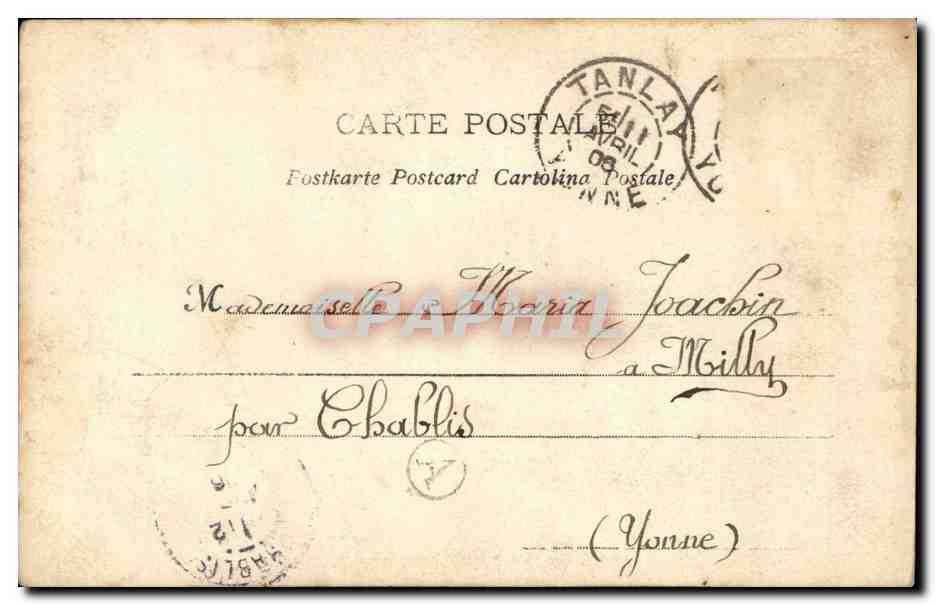 CARTE POSTALE
Postkarte Postcard Cartolina Postale
TANLAY
AVRIL
YONNE
YO
Mademoiselle Marin Joachin
à Milly
par Chablis
A
(Yonne)
CHABLIS
CPAPHIL